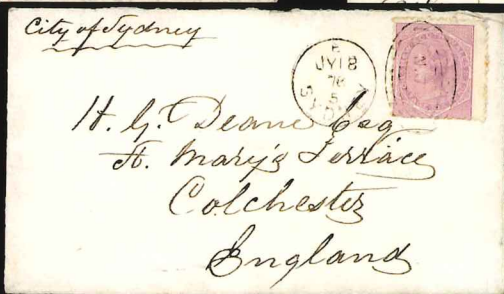 City of Sydney
E
JY 18
76
5
SYDNEY
H. G. Deane Esq
St. Mary's Terrace
Colchester
England